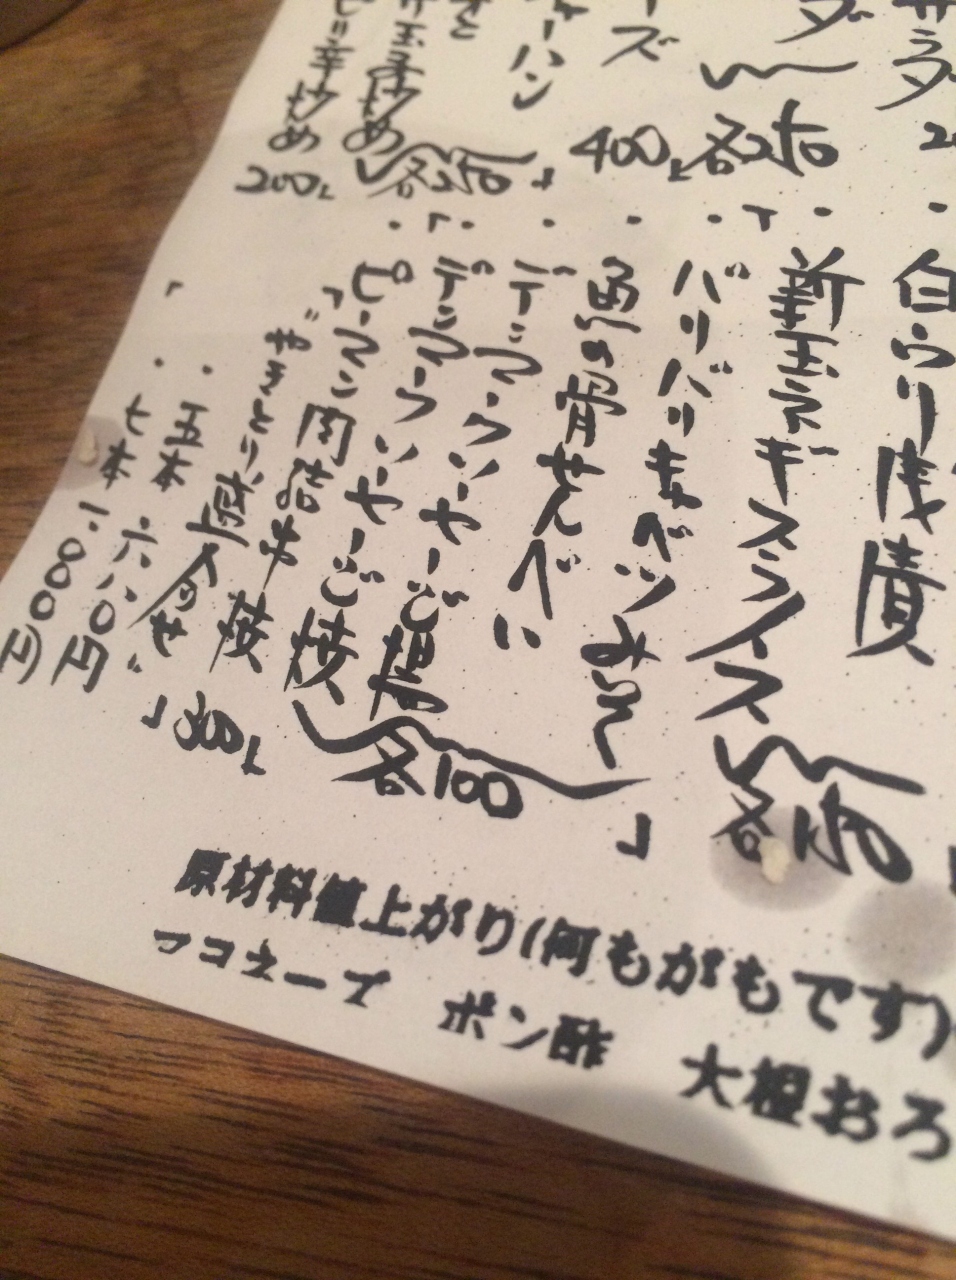 サラダ
ダ
各250
ーズ
400
ャーハン
玉子炒め
各250
ピリ辛炒め
200
白ウリ浅漬
新玉ネギスライス
各150
バリバリキャベツみそ
魚の骨せんべい
デンマークソーセージ揚
デンマークソーセージ焼
ピーマン肉詰串焼
各100
やきとり盛り合せ
五本 六八〇円
七本 一、〇〇〇円
原材料値上がり(何もがもです)
マヨネーズ ポン酢 大根おろ